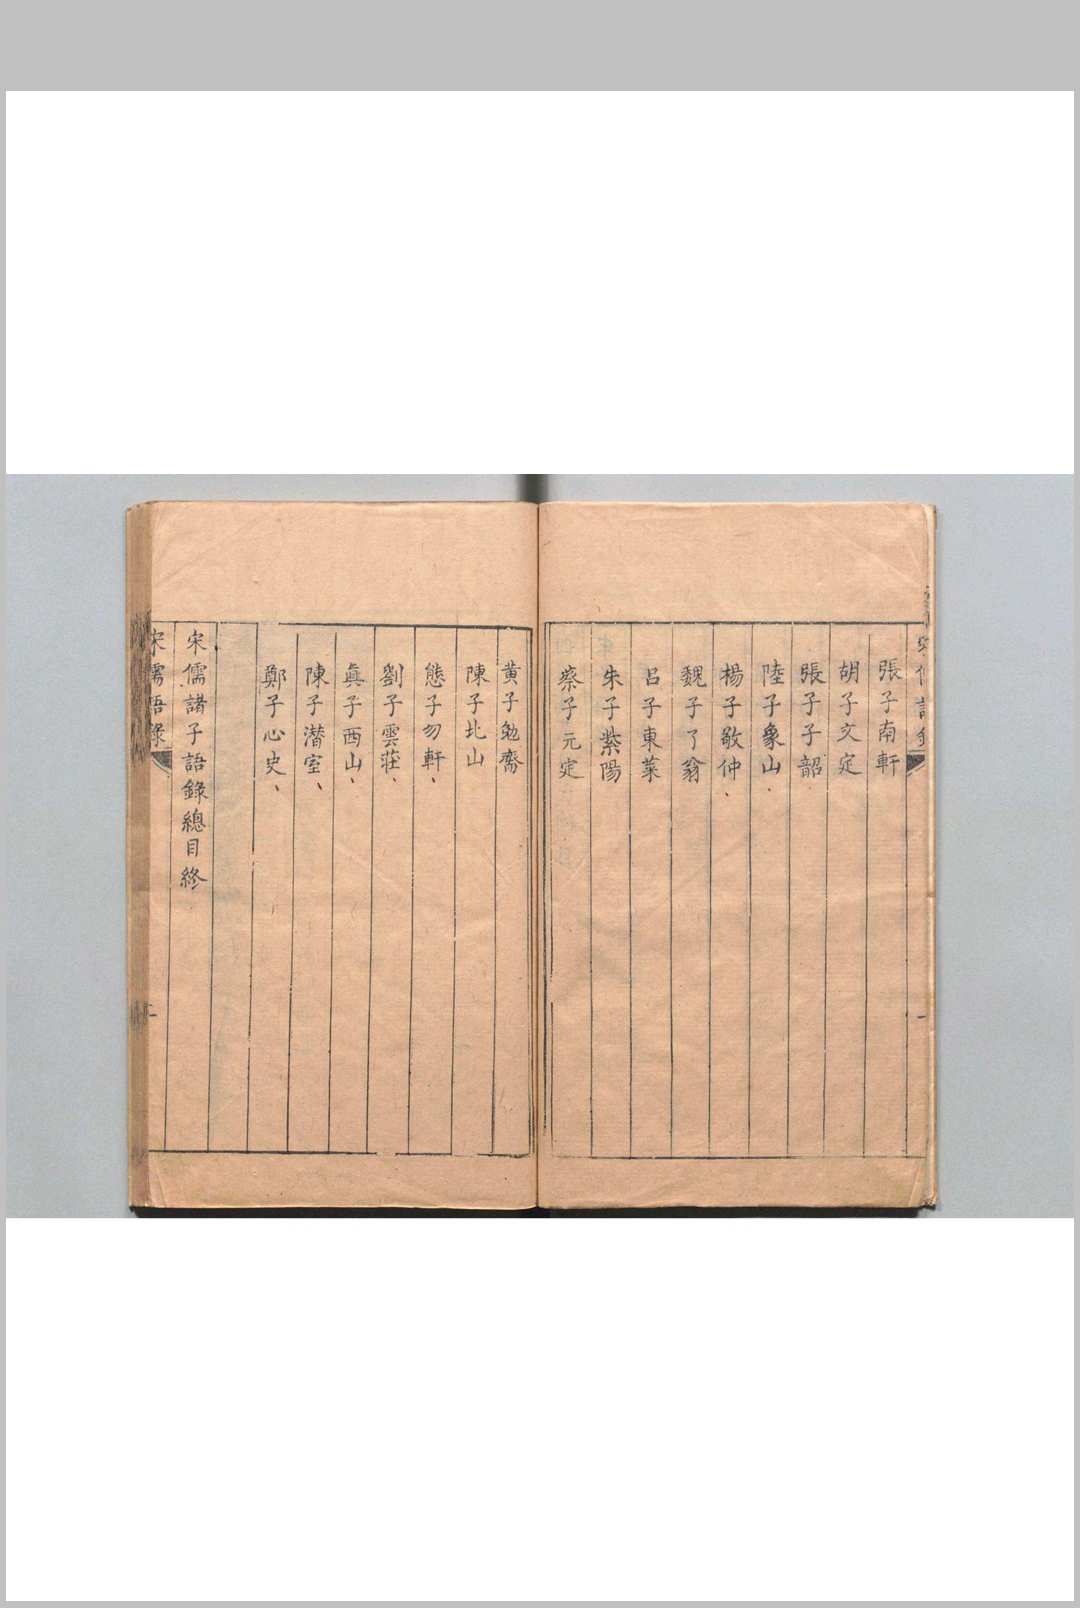 張子南軒
胡子文定
張子子韶
陸子象山
楊子敬仲
魏子了翁
呂子東萊
朱子紫陽
蔡子元定
黃子勉齋
陳子北山
熊子勿軒
劉子雲莊
眞子西山
陳子潛室
鄭子心史
宋儒諸子語錄總目終
宋儒語錄